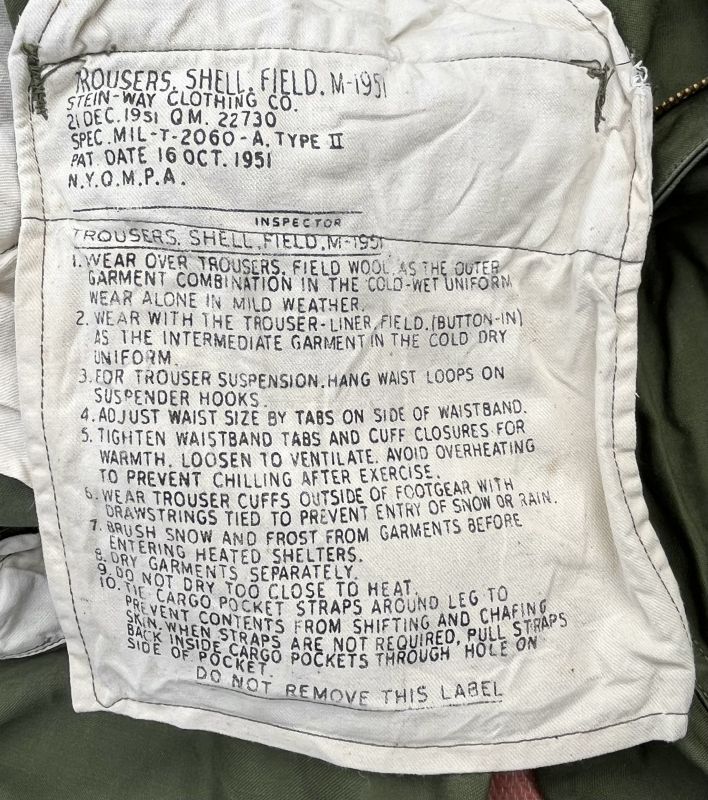 TROUSERS, SHELL, FIELD, M-1951
STEIN-WAY CLOTHING CO.
21 DEC. 1951 QM. 22730
SPEC. MIL-T-2060-A, TYPE II
PAT DATE 16 OCT. 1951
N.Y.Q.M.P.A.
INSPECTOR
TROUSERS, SHELL, FIELD, M-1951
1. WEAR OVER TROUSERS, FIELD WOOL, AS THE OUTER
GARMENT COMBINATION IN THE COLD-WET UNIFORM
WEAR ALONE IN MILD WEATHER.
2. WEAR WITH THE TROUSER-LINER, FIELD, (BUTTON-IN)
AS THE INTERMEDIATE GARMENT IN THE COLD DRY
UNIFORM.
3. FOR TROUSER SUSPENSION, HANG WAIST LOOPS ON
SUSPENDER HOOKS.
4. ADJUST WAIST SIZE BY TABS ON SIDE OF WAISTBAND.
5. TIGHTEN WAISTBAND TABS AND CUFF CLOSURES FOR
WARMTH. LOOSEN TO VENTILATE. AVOID OVERHEATING
TO PREVENT CHILLING AFTER EXERCISE.
6. WEAR TROUSER CUFFS OUTSIDE OF FOOTGEAR WITH
DRAWSTRINGS TIED TO PREVENT ENTRY OF SNOW OR RAIN.
7. BRUSH SNOW AND FROST FROM GARMENTS BEFORE
ENTERING HEATED SHELTERS.
8. DRY GARMENTS SEPARATELY.
9. DO NOT DRY TOO CLOSE TO HEAT.
10. TIE CARGO POCKET STRAPS AROUND LEG TO
PREVENT CONTENTS FROM SHIFTING AND CHAFING
SKIN. WHEN STRAPS ARE NOT REQUIRED, PULL STRAPS
BACK INSIDE CARGO POCKETS THROUGH HOLE ON
SIDE OF POCKET
DO NOT REMOVE THIS LABEL